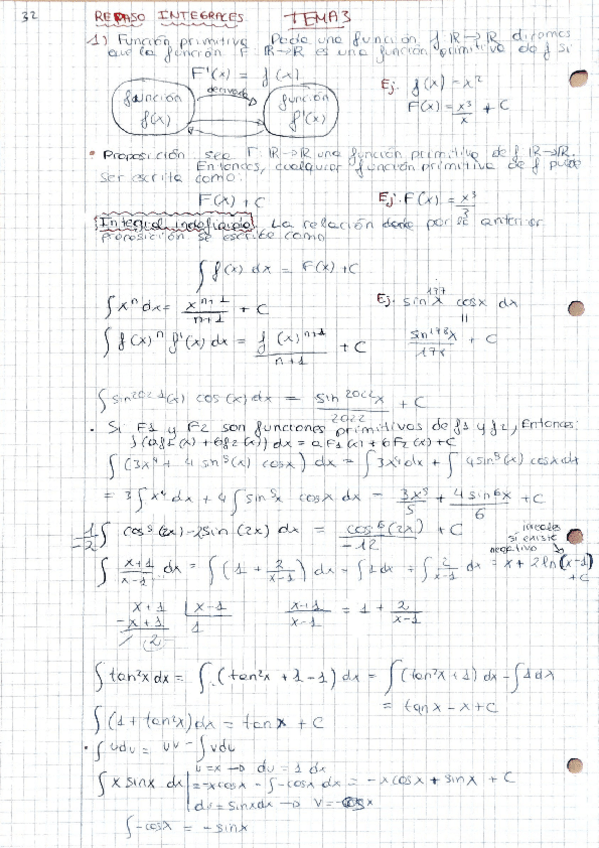 32 REPASO INTEGRALES TEMA 3
1) Función primitiva Dada una función f: R→R diremos
que la función F: R→R es una función primitiva de f si
F'(x) = f(x)
Ej: f(x) = x²
F(x) = x³/x + C
derivada
función f(x)
función f'(x)
• Proposición sea F: R→R una función primitiva de f R→R.
Entonces, cualquier función primitiva de f puede
ser escrita como:
F(x) + C
Ej: F(x) = x³/3
Integral indefinida. La relación dada por la anterior
proposición se escribe como
∫ f(x) dx = F(x) + C
∫ xⁿ dx = xⁿ⁺¹/n+1 + C
Ej: sin¹³⁷x cosx dx
=
∫ f(x)ⁿ f'(x) dx = f(x)ⁿ⁺¹/n+1 + C
+ C
∫ sin²⁰²¹(x) cos(x) dx = sin²⁰²²x/2022 + C
• Si F1 y F2 son funciones primitivas de f1 y f2, Entonces:
∫(af1(x) + bf2(x)) dx = aF1(x) + bF2(x) + C
∫ (3x⁴ + 4 sin⁵(x) cosx) dx = ∫ 3x⁴ dx + ∫ 4sin⁵(x) cosx dx
= 3∫ x⁴ dx + 4∫ sin⁵x cosx dx = 3x⁵/5 + 4sin⁶x/6 + C
1/-2 ∫ cos⁵(2x)-2sin(2x) dx = cos⁶(2x)/-12 + C
si existe
negativo
∫ x+1/x-1 dx = ∫ (1 + 2/x-1) dx = ∫ 1dx + ∫ 2/x-1 dx = x + 2ln(x-1) + C
x+1 | x-1
-x+1 1
2
x+1/x-1 = 1 + 2/x-1
∫ tan²x dx = ∫ (tan²x + 1 - 1) dx = ∫ (tan²x + 1) dx - ∫ 1dx
= tanx - x + C
∫ (1 + tan²x) dx = tanx + C
• ∫ udv = uv - ∫ vdu
u=x → du = 1 dx
∫ x sinx dx = -xcosx - ∫ -cosx dx = -xcosx + sinx + C
dv = sinxdx → v = -cosx
∫ -cosx = -sinx